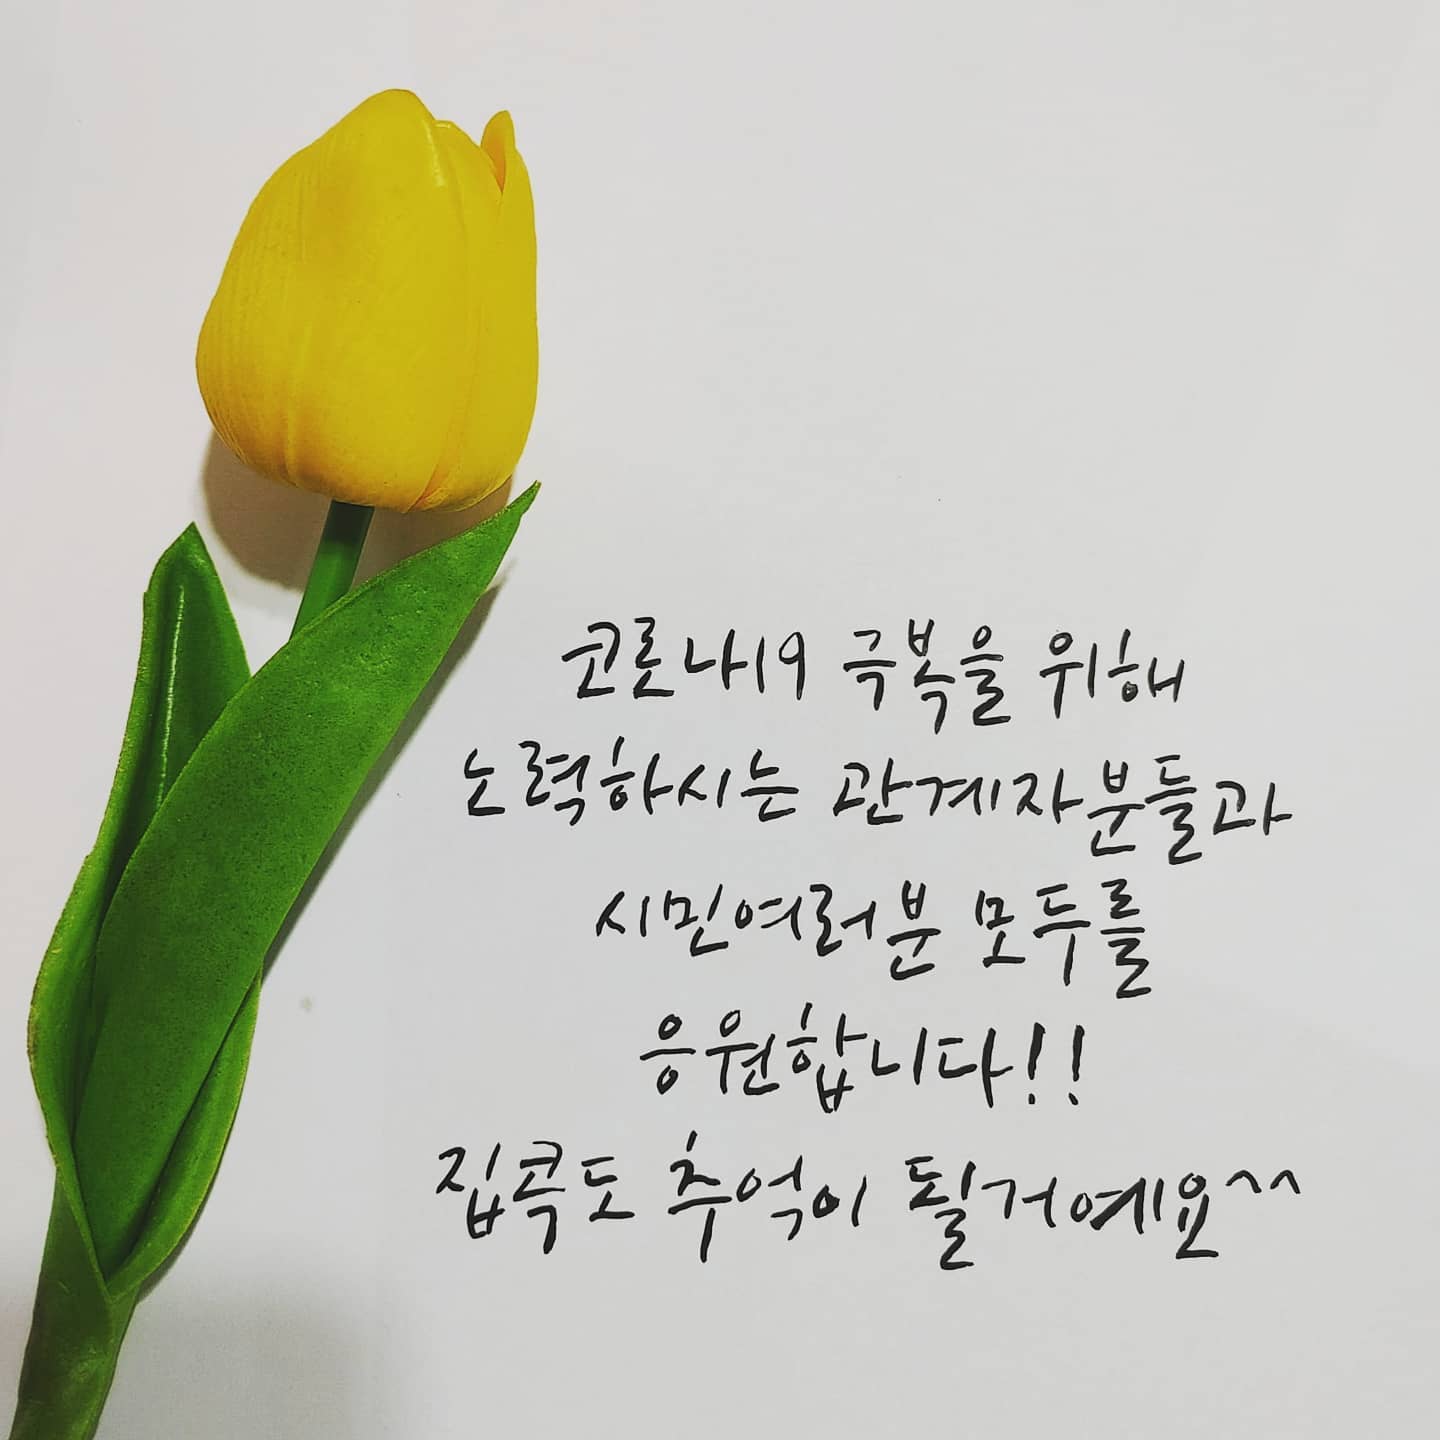 코로나19 극복을 위해
노력하시는 관계자분들과
시민여러분 모두를
응원합니다!!
집콕도 추억이 될거예요^^